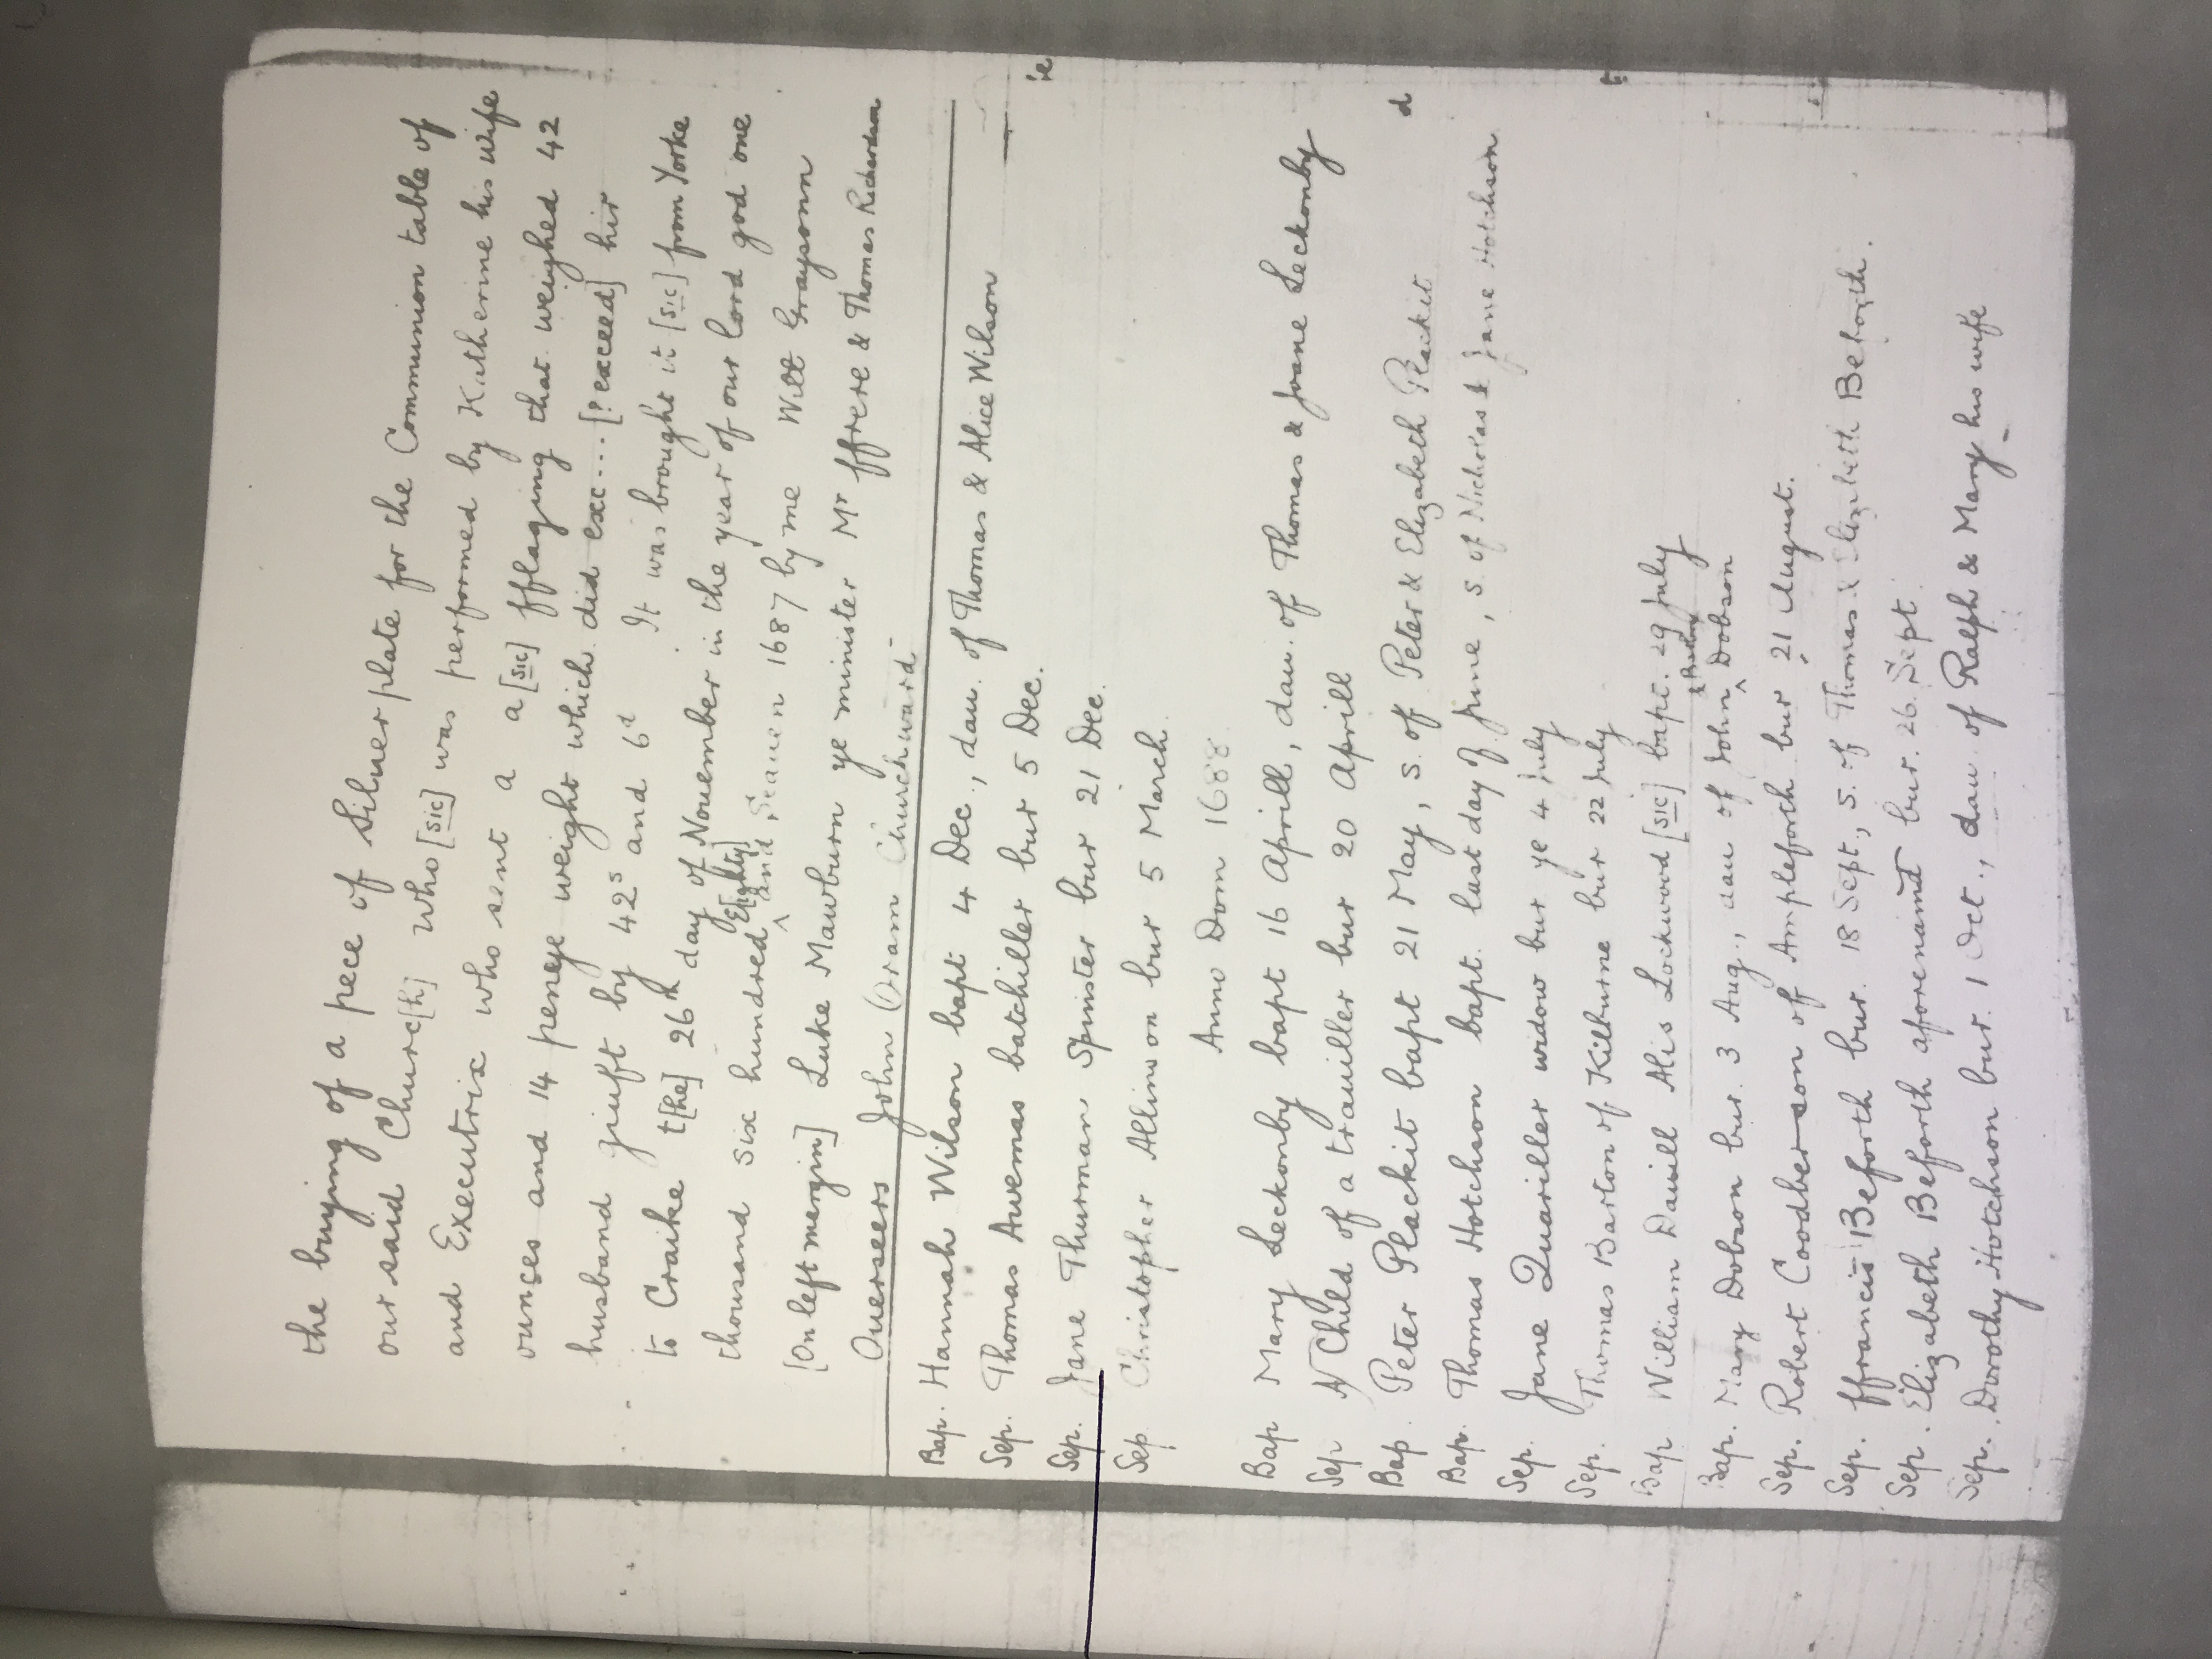 the buying of a pece of Siluer plate for the Communion table of
our said Churc[h] who [sic] was performed by Katherine his wife
and Executrix who sent a a [sic] fflaging that weighed 42
ounses and 14 peneye weight which did exc... [? exceed] hir
husband giuft by 42s and 6d It was brought it [sic] from Yorke
to Craike t[he] 26th day of Nouember in the year of our Lord god one
thousand six hundred E[ighty] and Seauen 1687 by me Will Graysonn
[On left margin] Luke Mawburn ye minister Mr ffrere & Thomas Richardson
Ouerseers John Oram Churchward
Bap. Hannah Wilson bapt 4 Dec., dau. of Thomas & Alice Wilson
Sep. Thomas Awemas batchiller bur 5 Dec.
Sep. Jane Thurman Spinster bur 21 Dec.
Sep. Christopher Allinson bur 5 March
Anno Dom 1688.
Bap Mary Leckonby bapt 16 Aprill, dau. of Thomas & Joane Leckonby
Sep A Child of a trauiller bur 20 Aprill
Bap Peter Plackit bapt 21 May, s. of Peter & Elizabeth Plackit
Bap. Thomas Hotchson bapt. last day of June, s. of Nicholas & Jane Hotchson
Sep. Jane Quariller widow bur ye 4 July
Sep. Thomas Barton of Kilburne bur 22 July
Bap William Dauill Alis Lockwood [sic] bapt. 29 July
Bap. Mary Dobson bur. 3 Aug., dau of John & Dobson
Sep. Robert Coodberson of Ampleforth bur 21 August.
Sep. ffrancis Beforth bur. 18 Sept., s. of Thomas & Elizebeth Beforth.
Sep. Elizabeth Beforth aforenamd bur. 26. Sept
Sep. Dorothy Hotchson bur. 1 Oct., dau of Ralph & Mary his wife